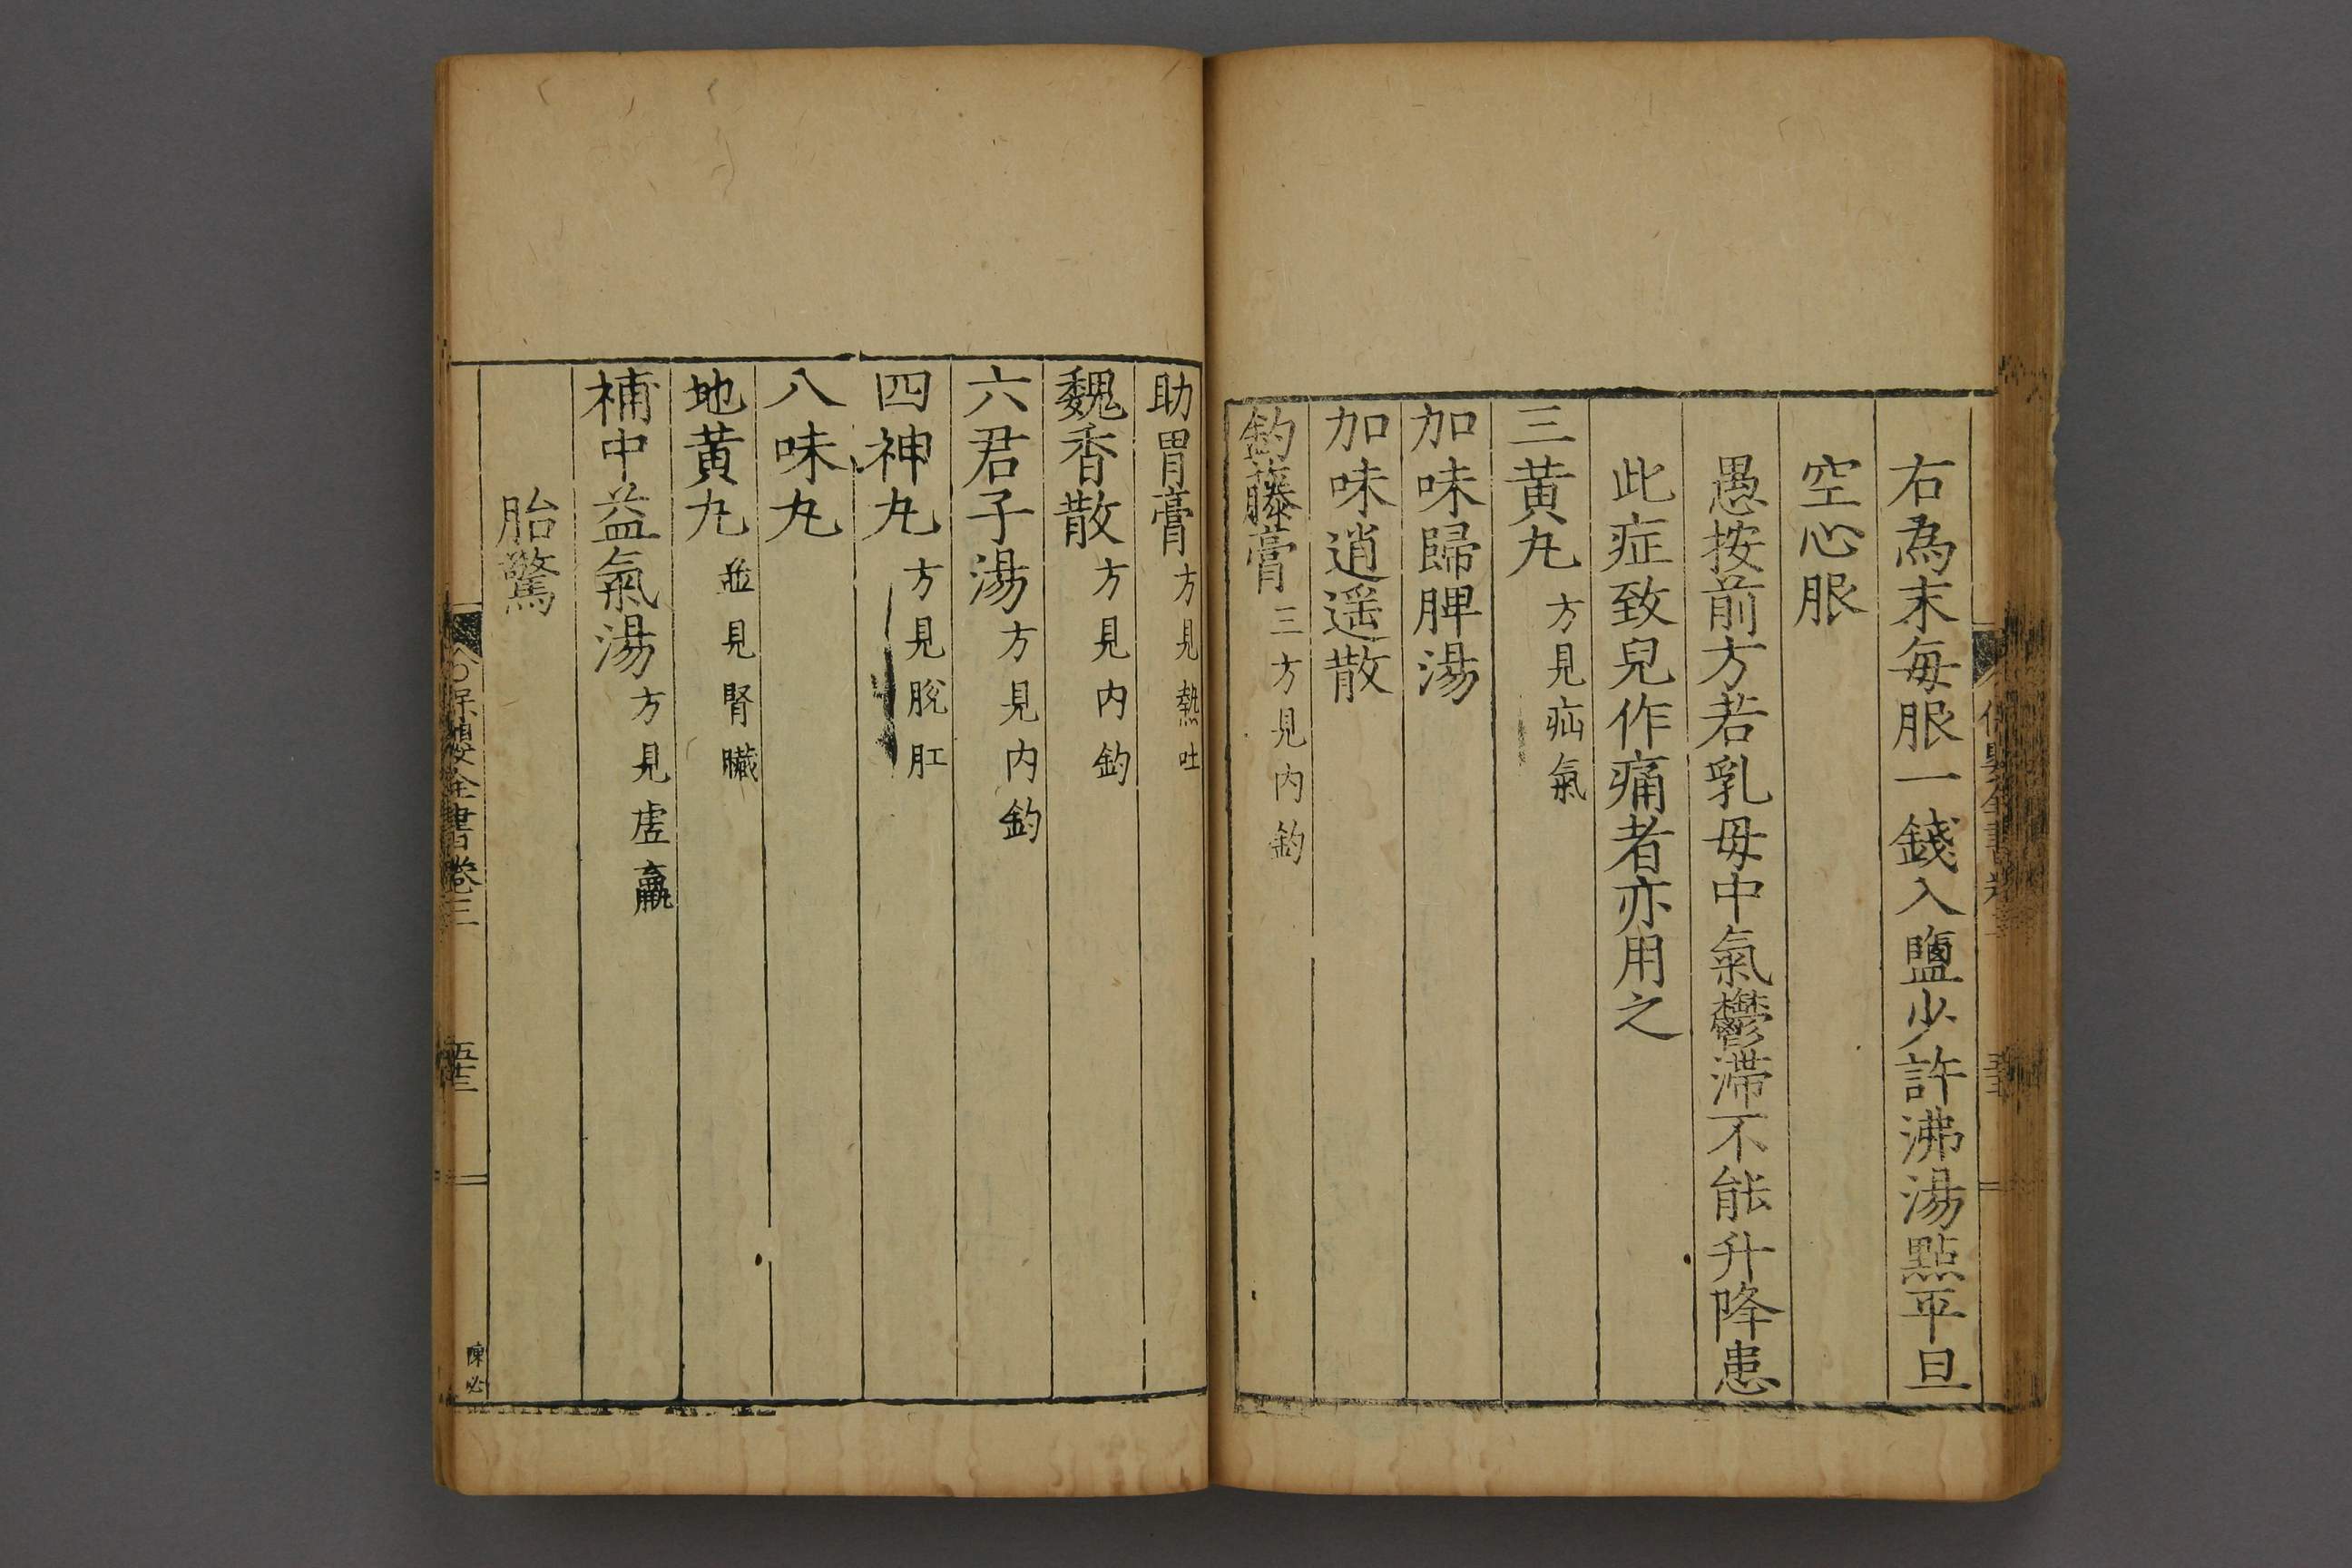 右為末每服一錢入鹽少許沸湯點平旦
空心服
愚按前方若乳母中氣鬱滯不能升降患
此症致兒作痛者亦用之
三黄丸方見疝氣
加味歸脾湯
加味逍遥散
釣藤膏三方見内釣
助胃膏方見熱吐
魏香散方見内釣
六君子湯方見内釣
四神丸方見脫肛
八味丸
地黄丸並見腎臟
補中益氣湯方見虛羸
胎驚
保嬰全書卷三
五十三
陳必